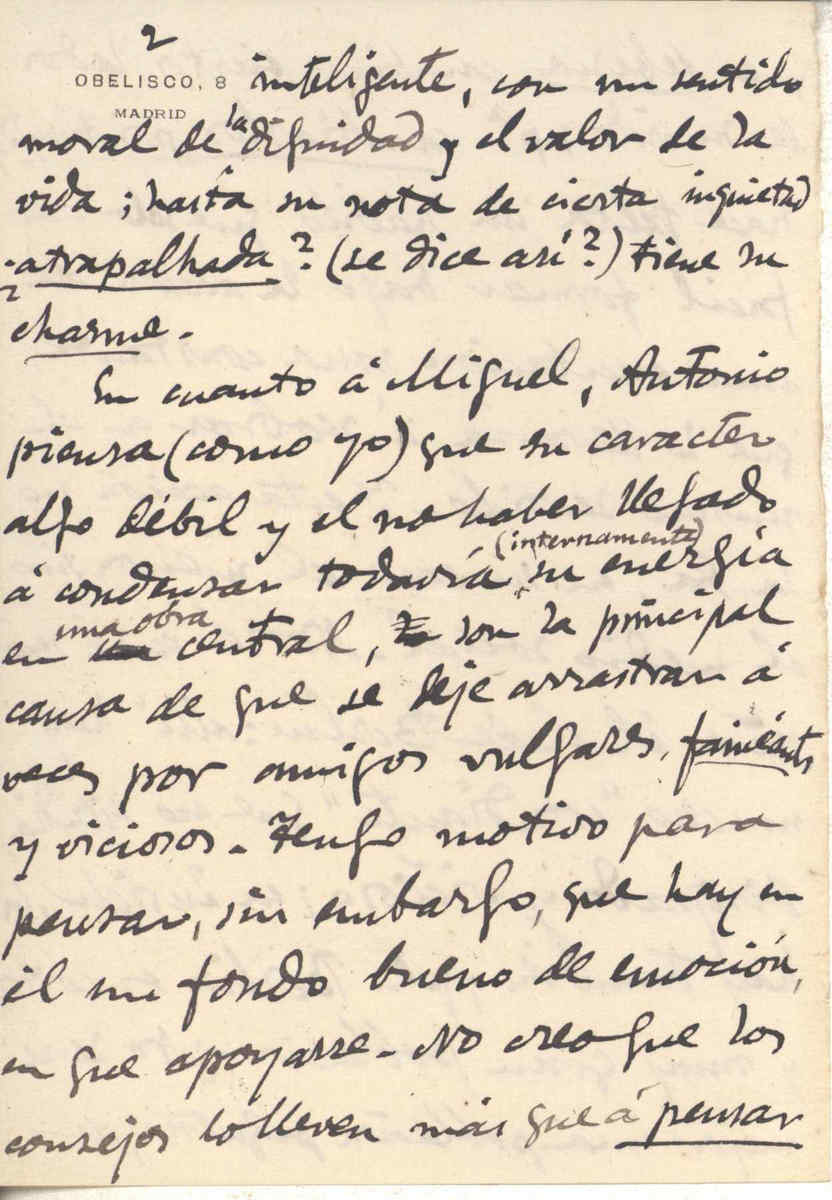 2
OBELISCO, 8
MADRID
inteligente, con un sentido
moral de la dignidad y el valor de la
vida; hasta su nota de cierta inquietud
atrapalhada? (se dice así?) tiene su
charme.
En cuanto á Miguel, Antonio
piensa (como yo) que su caracter
algo débil y el no haber llegado
á condensar todavía (internamente) su energía
en una obra central, son la principal
causa de que se deje arrastrar á
veces por amigos vulgares, fainéants
y viciosos. Tengo motivo para
pensar, sin embargo, que hay en
él un fondo bueno de emoción,
en que apoyarse. No creo que los
consejos lo lleven más que á pensar